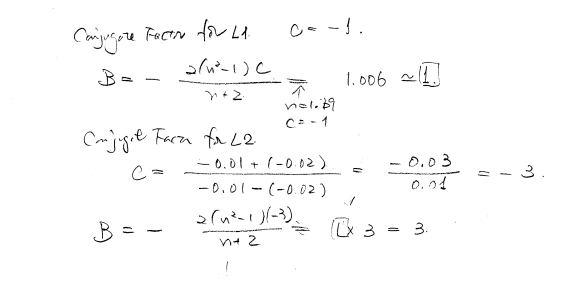 Conjugate Factor for L1. C = -1.
B = - 2(n²-1)C / n+2 = 1.006 ≃ 1.
↑
n=1.
C = -1
Conjugate Factor for L2
C = -0.01 + (-0.02) / -0.01 - (-0.02) = -0.03 / 0.01 = -3.
B = - 2(n²-1)(-3) / n+2 = 1 x 3 = 3.